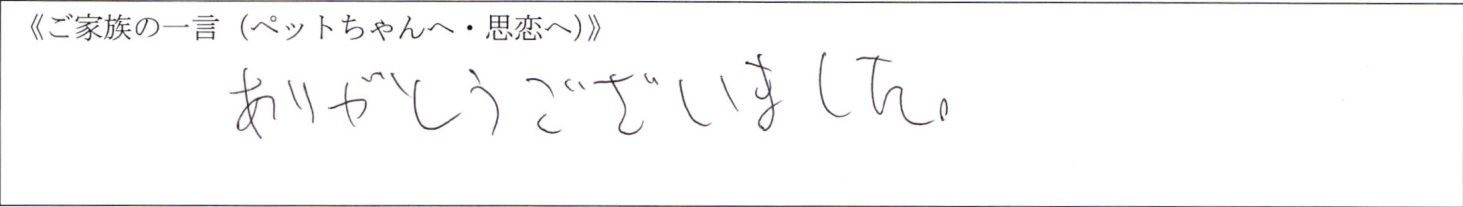 《ご家族の一言（ペットちゃんへ・思恋へ）》
ありがとうございました。